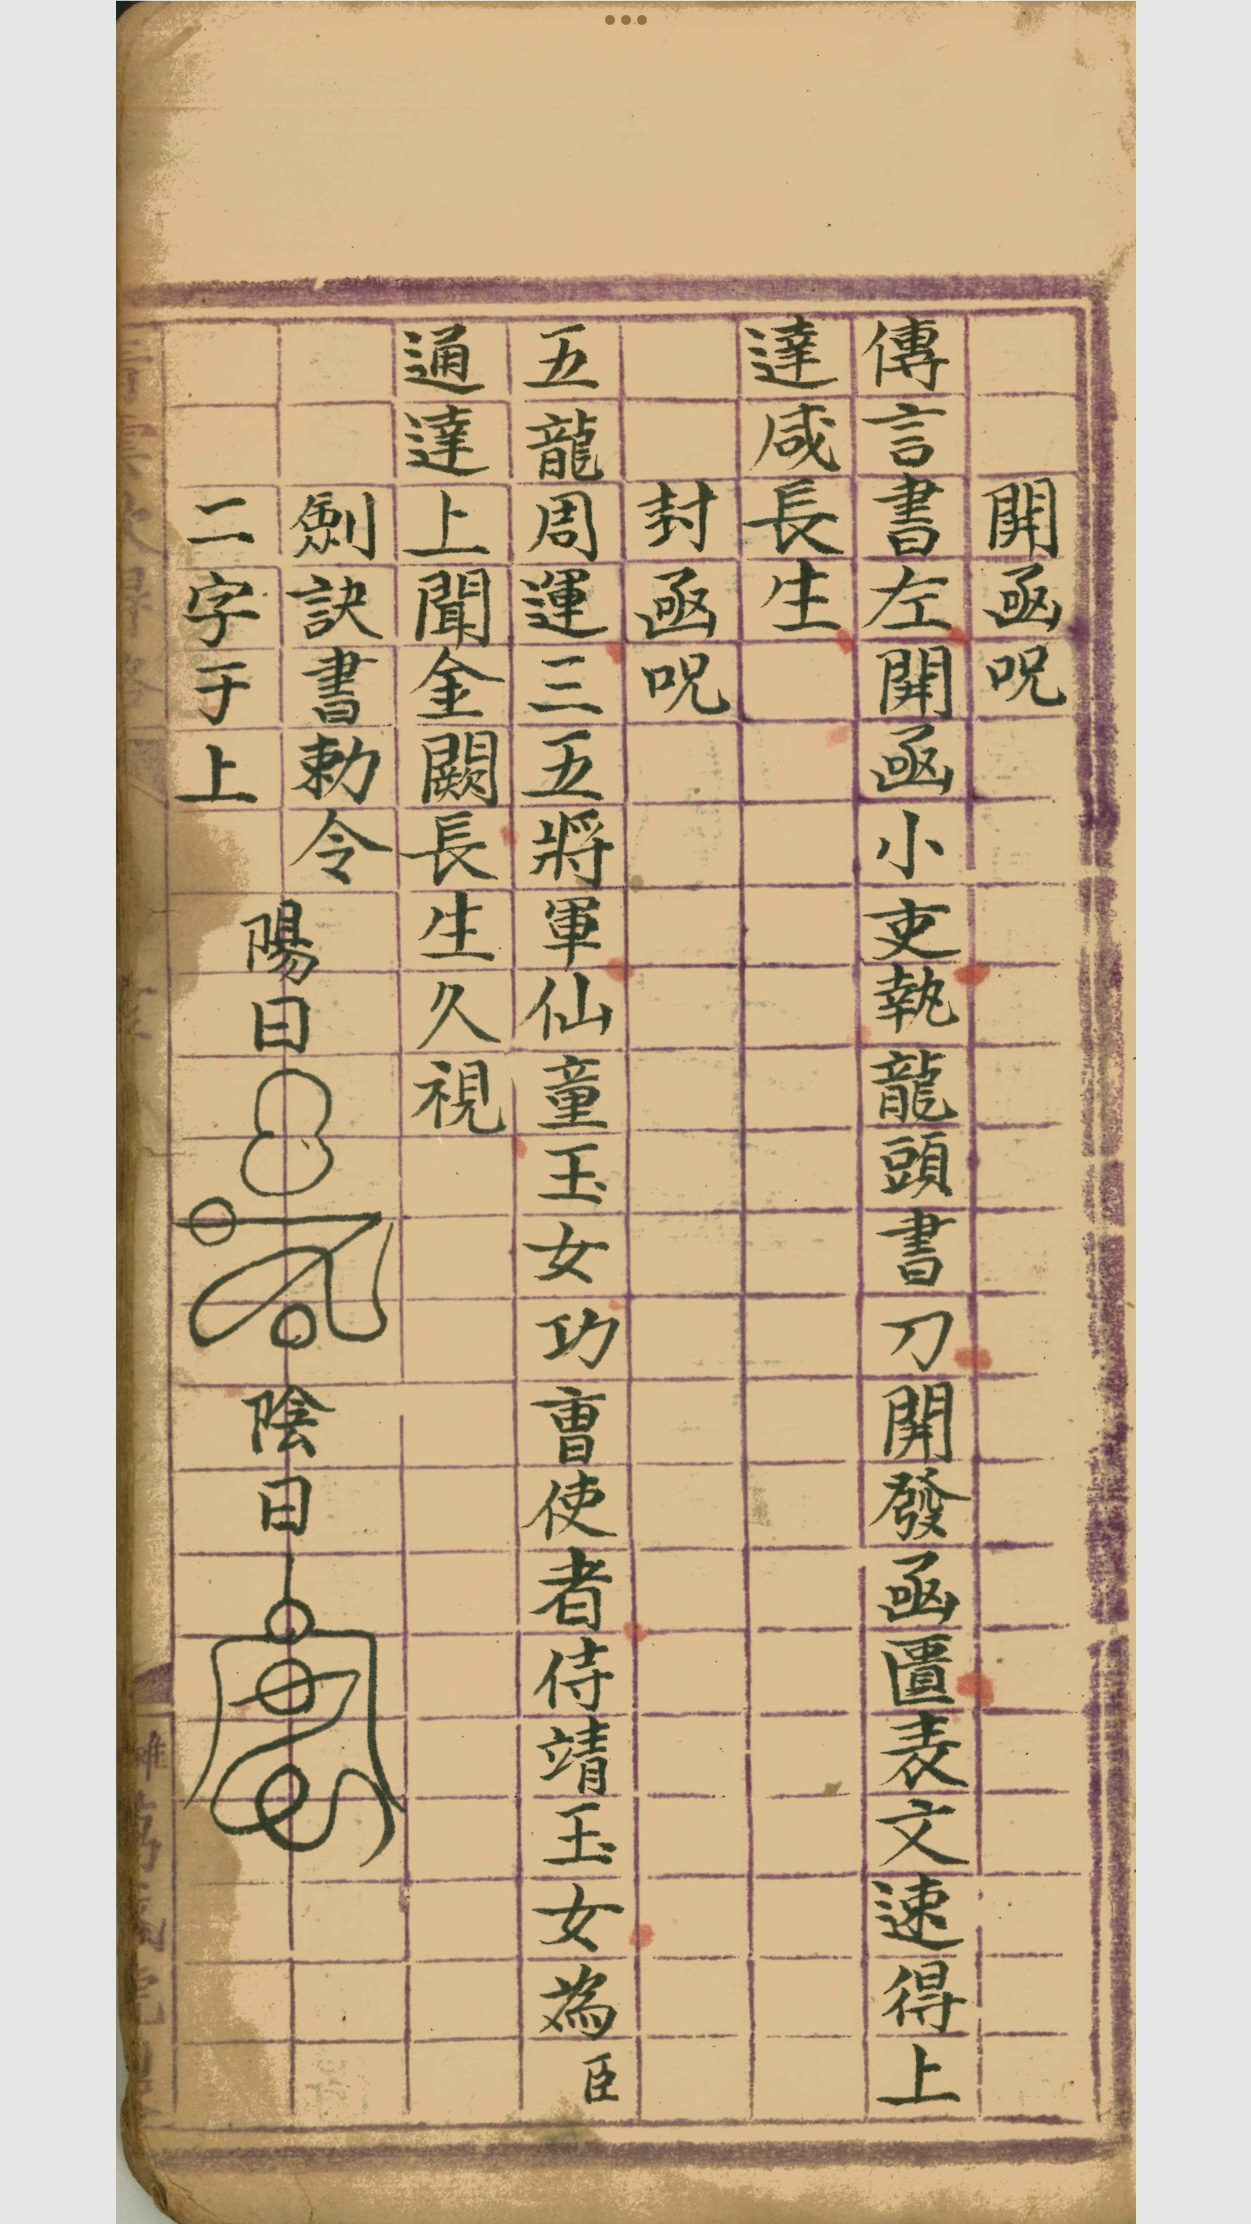 開凾呪
傳言書左開凾小吏執龍頭書刀開發凾匱表文速得上
達咸長生
封凾呪
五龍周運三五將軍仙童玉女功曹使者侍靖玉女為臣
通達上聞金闕長生久視
劍訣書勅令
二字于上
陽日
陰日